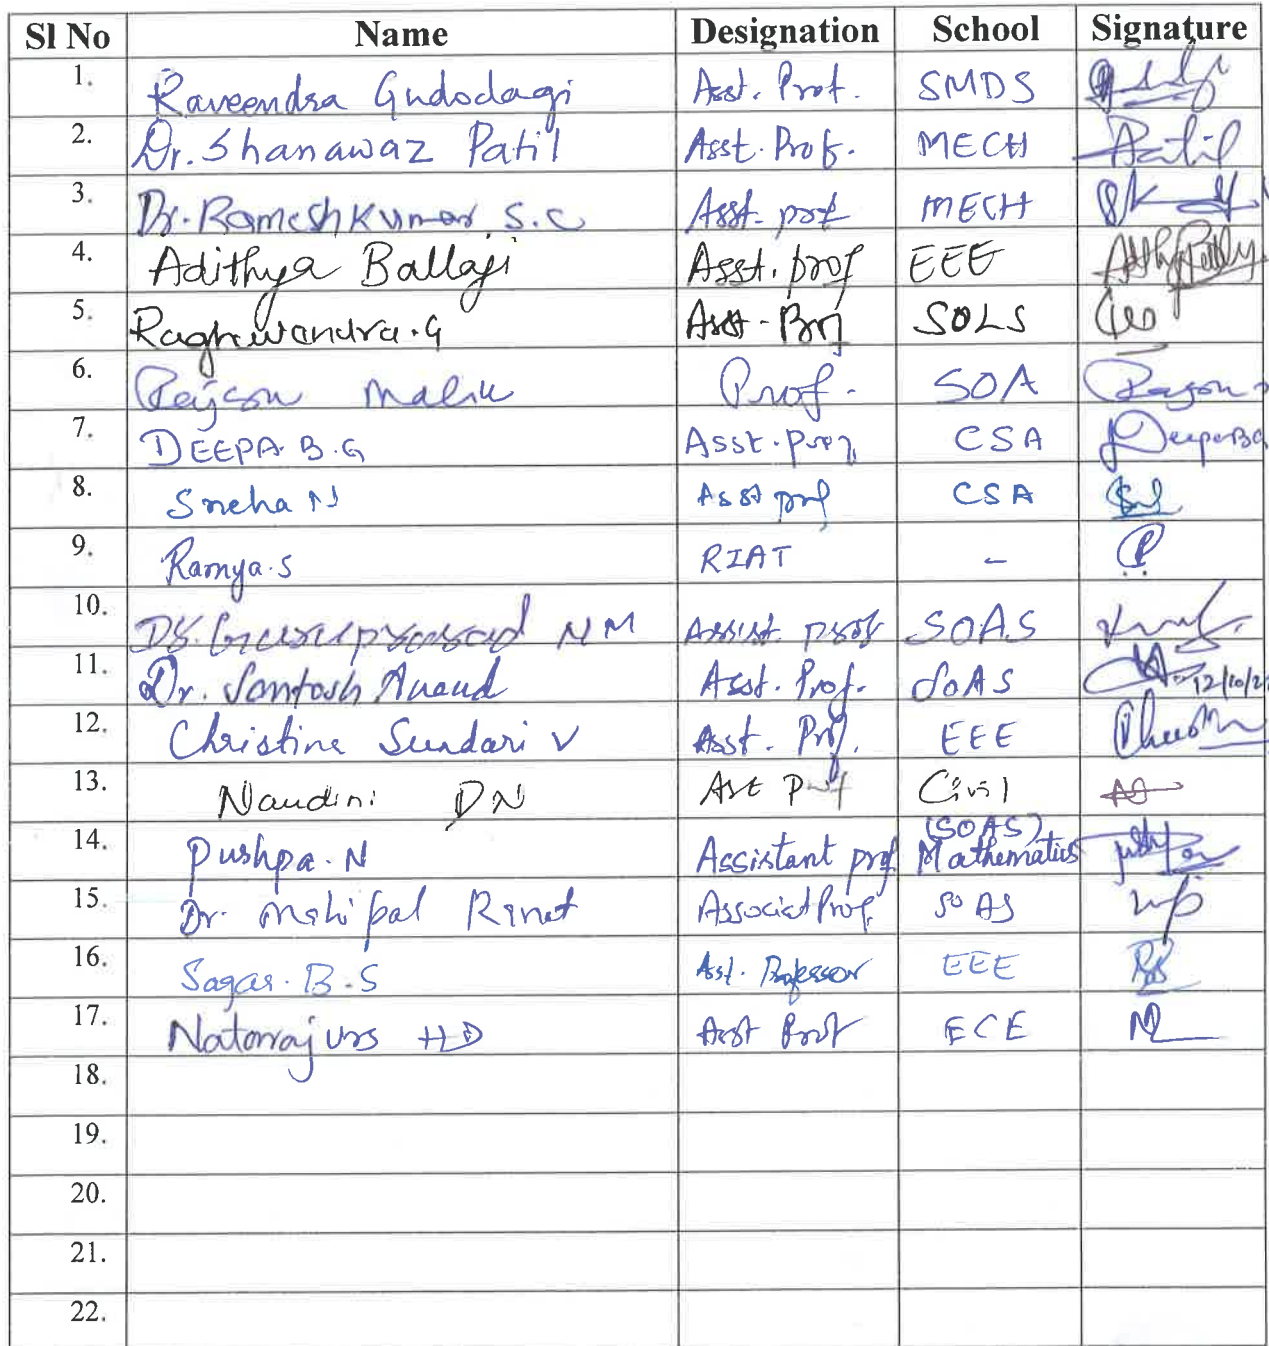 Sl No Name Designation School Signature
1. Raveendra Gudodagi Asst. Prof. SMDS
2. Dr. Shanawaz Patil Asst. Prof. MECH Patil
3. Dr. Ramesh Kumar S.C Asst. prof MECH
4. Adithya Ballaji Asst. prof EEE
5. Raghavendra. G Asst. Prof SOLS
6. Malik Prof. SOA
7. DEEPA. B.G Asst. Prof, CSA DeepaBG
8. Sneha N Asst prof CSA
9. Ramya. S RIAT -
10. Dr. Guruprasad N M Assist. prof SOAS
11. Dr. Santosh Anand Asst. Prof. SOAS 12/10/2
12. Christina Sundari V Asst. Prof. EEE
13. Nandini DN Ast Prof Civil
14. Pushpa. N Assistant prof (SOAS)
Mathematics
15. Dr. Associat Prof. SOAS
16. Sagar. B. S Ast. Professor EEE
17. Natarraj urs HD Asst Prof ECE
18.
19.
20.
21.
22.